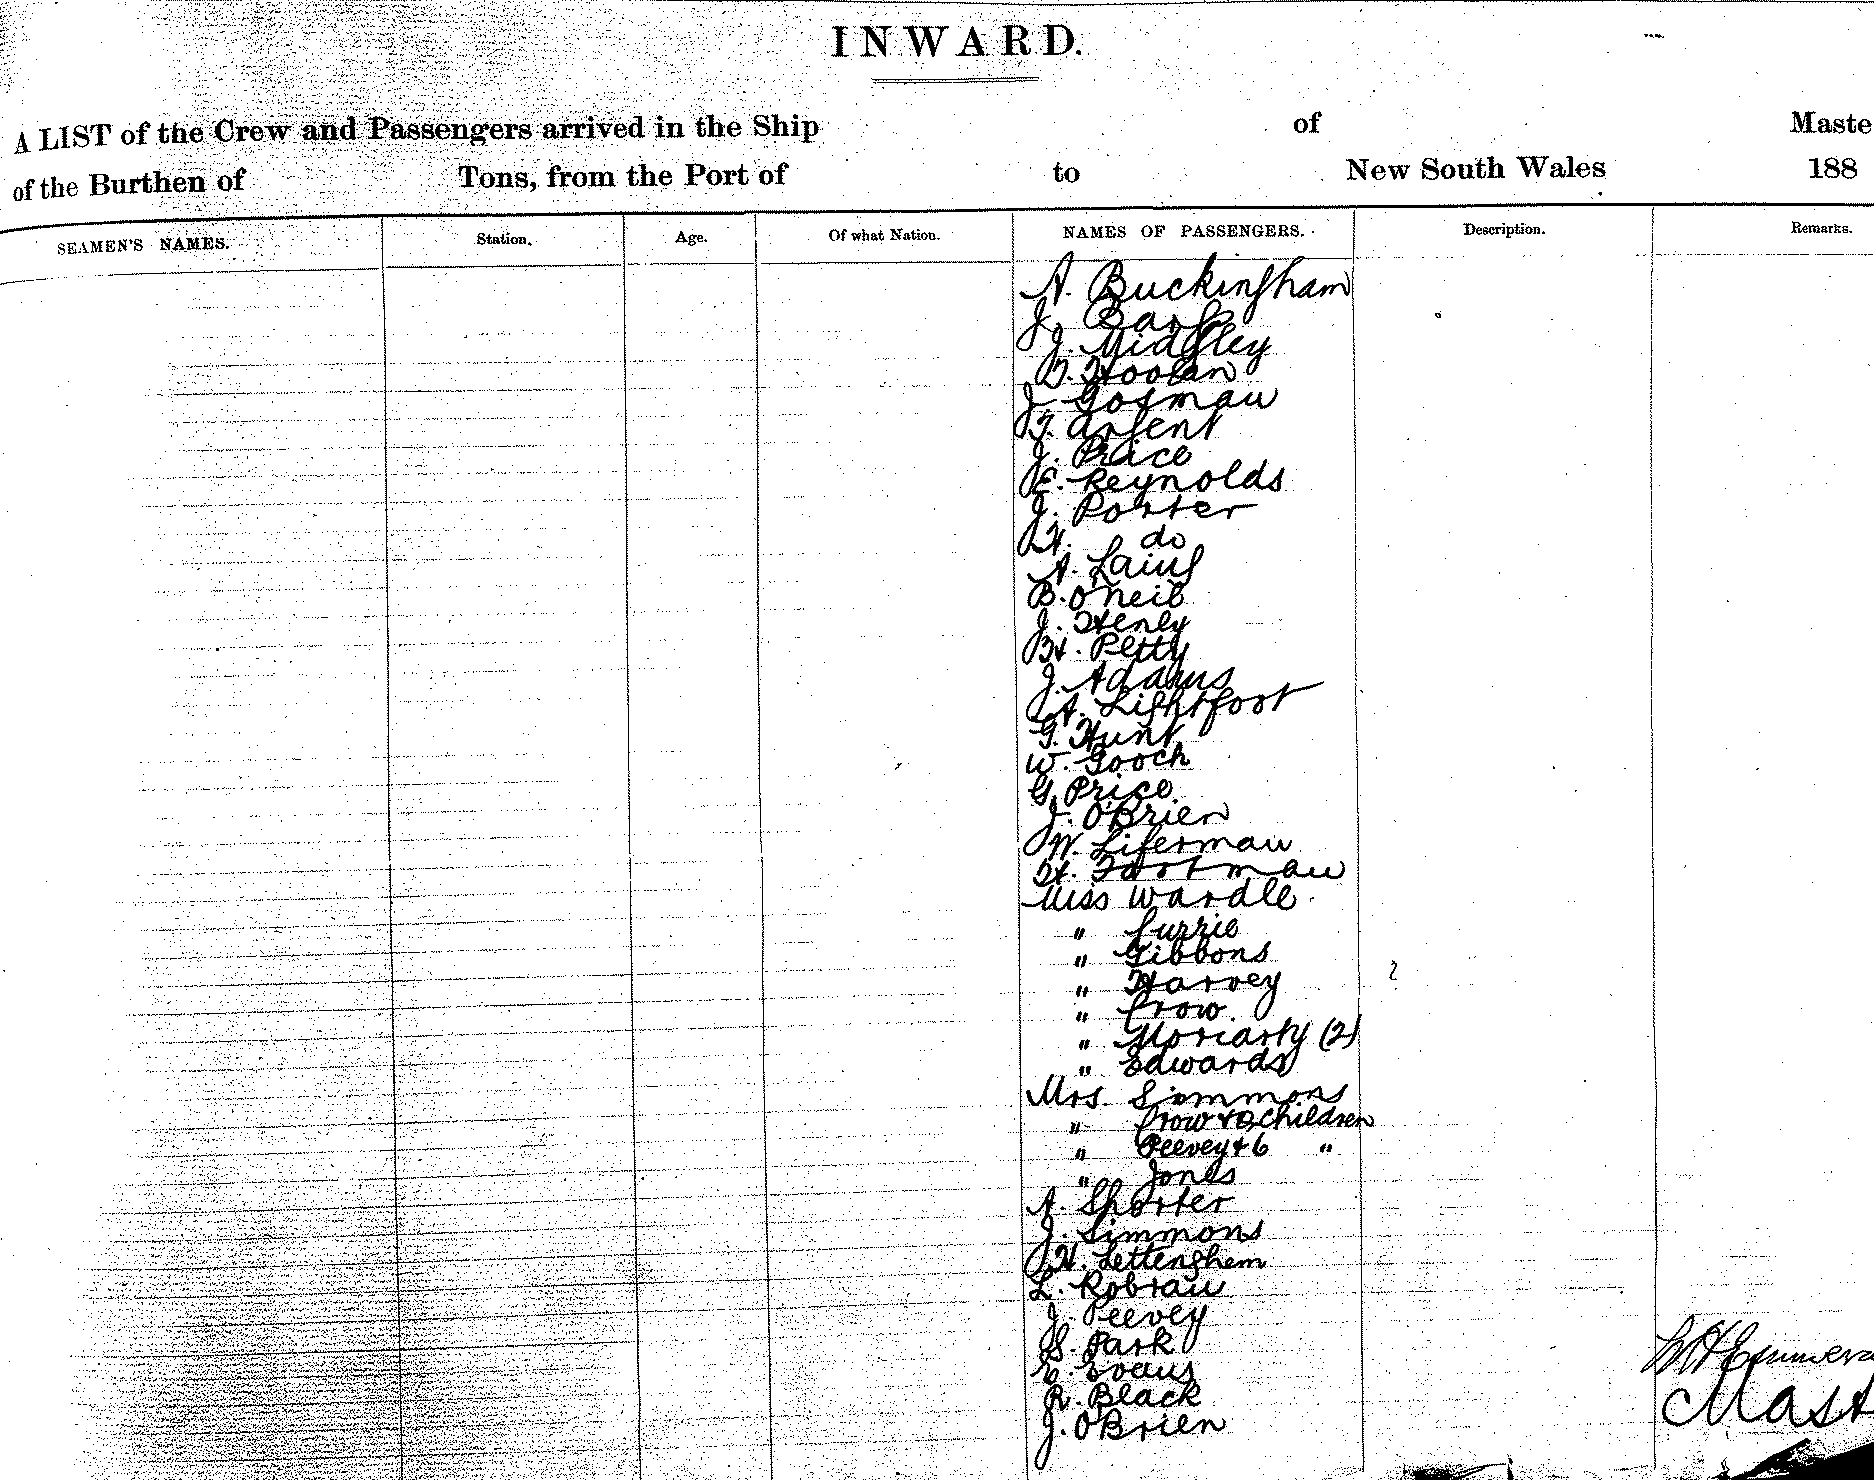 INWARD.
A LIST of the Crew and Passengers arrived in the Ship of Maste
of the Burthen of Tons, from the Port of to New South Wales 188
SEAMEN'S NAMES. Station. Age. Of what Nation. NAMES OF PASSENGERS. Description. Remarks.
A. Buckingham
J.
J. Midgley
T. Hoolan
J. Gosman
T. Argent
J. Price
E. Reynolds
J. Porter
H. do
A. Laing
B. O'Neil
J. Henly
H. Petty
J. Adams
A. Lightfoot
G. Hunt
W. Gooch
G. Price
J. O'Brien
W. Liferman
H. Footman
Miss Wardle
" Currie
" Gibbons
" Harvey
" Crow
" Moriarty (2)
" Edwards
Mrs Simmons
" Crow & children
" Peevey & 6 "
" Jones
A. Shorter
J. Simmons
H. Lettenghem
L. Robrau
J. Peevey
S. Park
E. Evans
R. Black
J. O'Brien
Mast